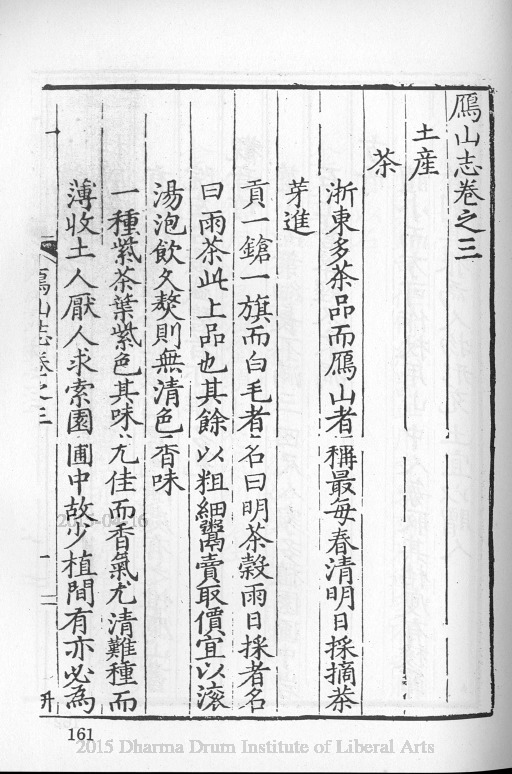 鴈山志卷之三
土産
茶
浙東多茶品而鴈山者稱最每春清明日採摘茶
芽進
貢一鎗一旗而白毛者名曰明茶榖雨日採者名
曰雨茶此上品也其餘以粗細鬻賣取價宜以滚
湯泡飲久熬則無清色香味
一種紫茶葉紫色其味尤佳而香氣尤清難種而
薄收土人厭人求索園圃中故少植間有亦必為
鴈山志卷之三
一
升
161
2015 Dharma Drum Institute of Liberal Arts